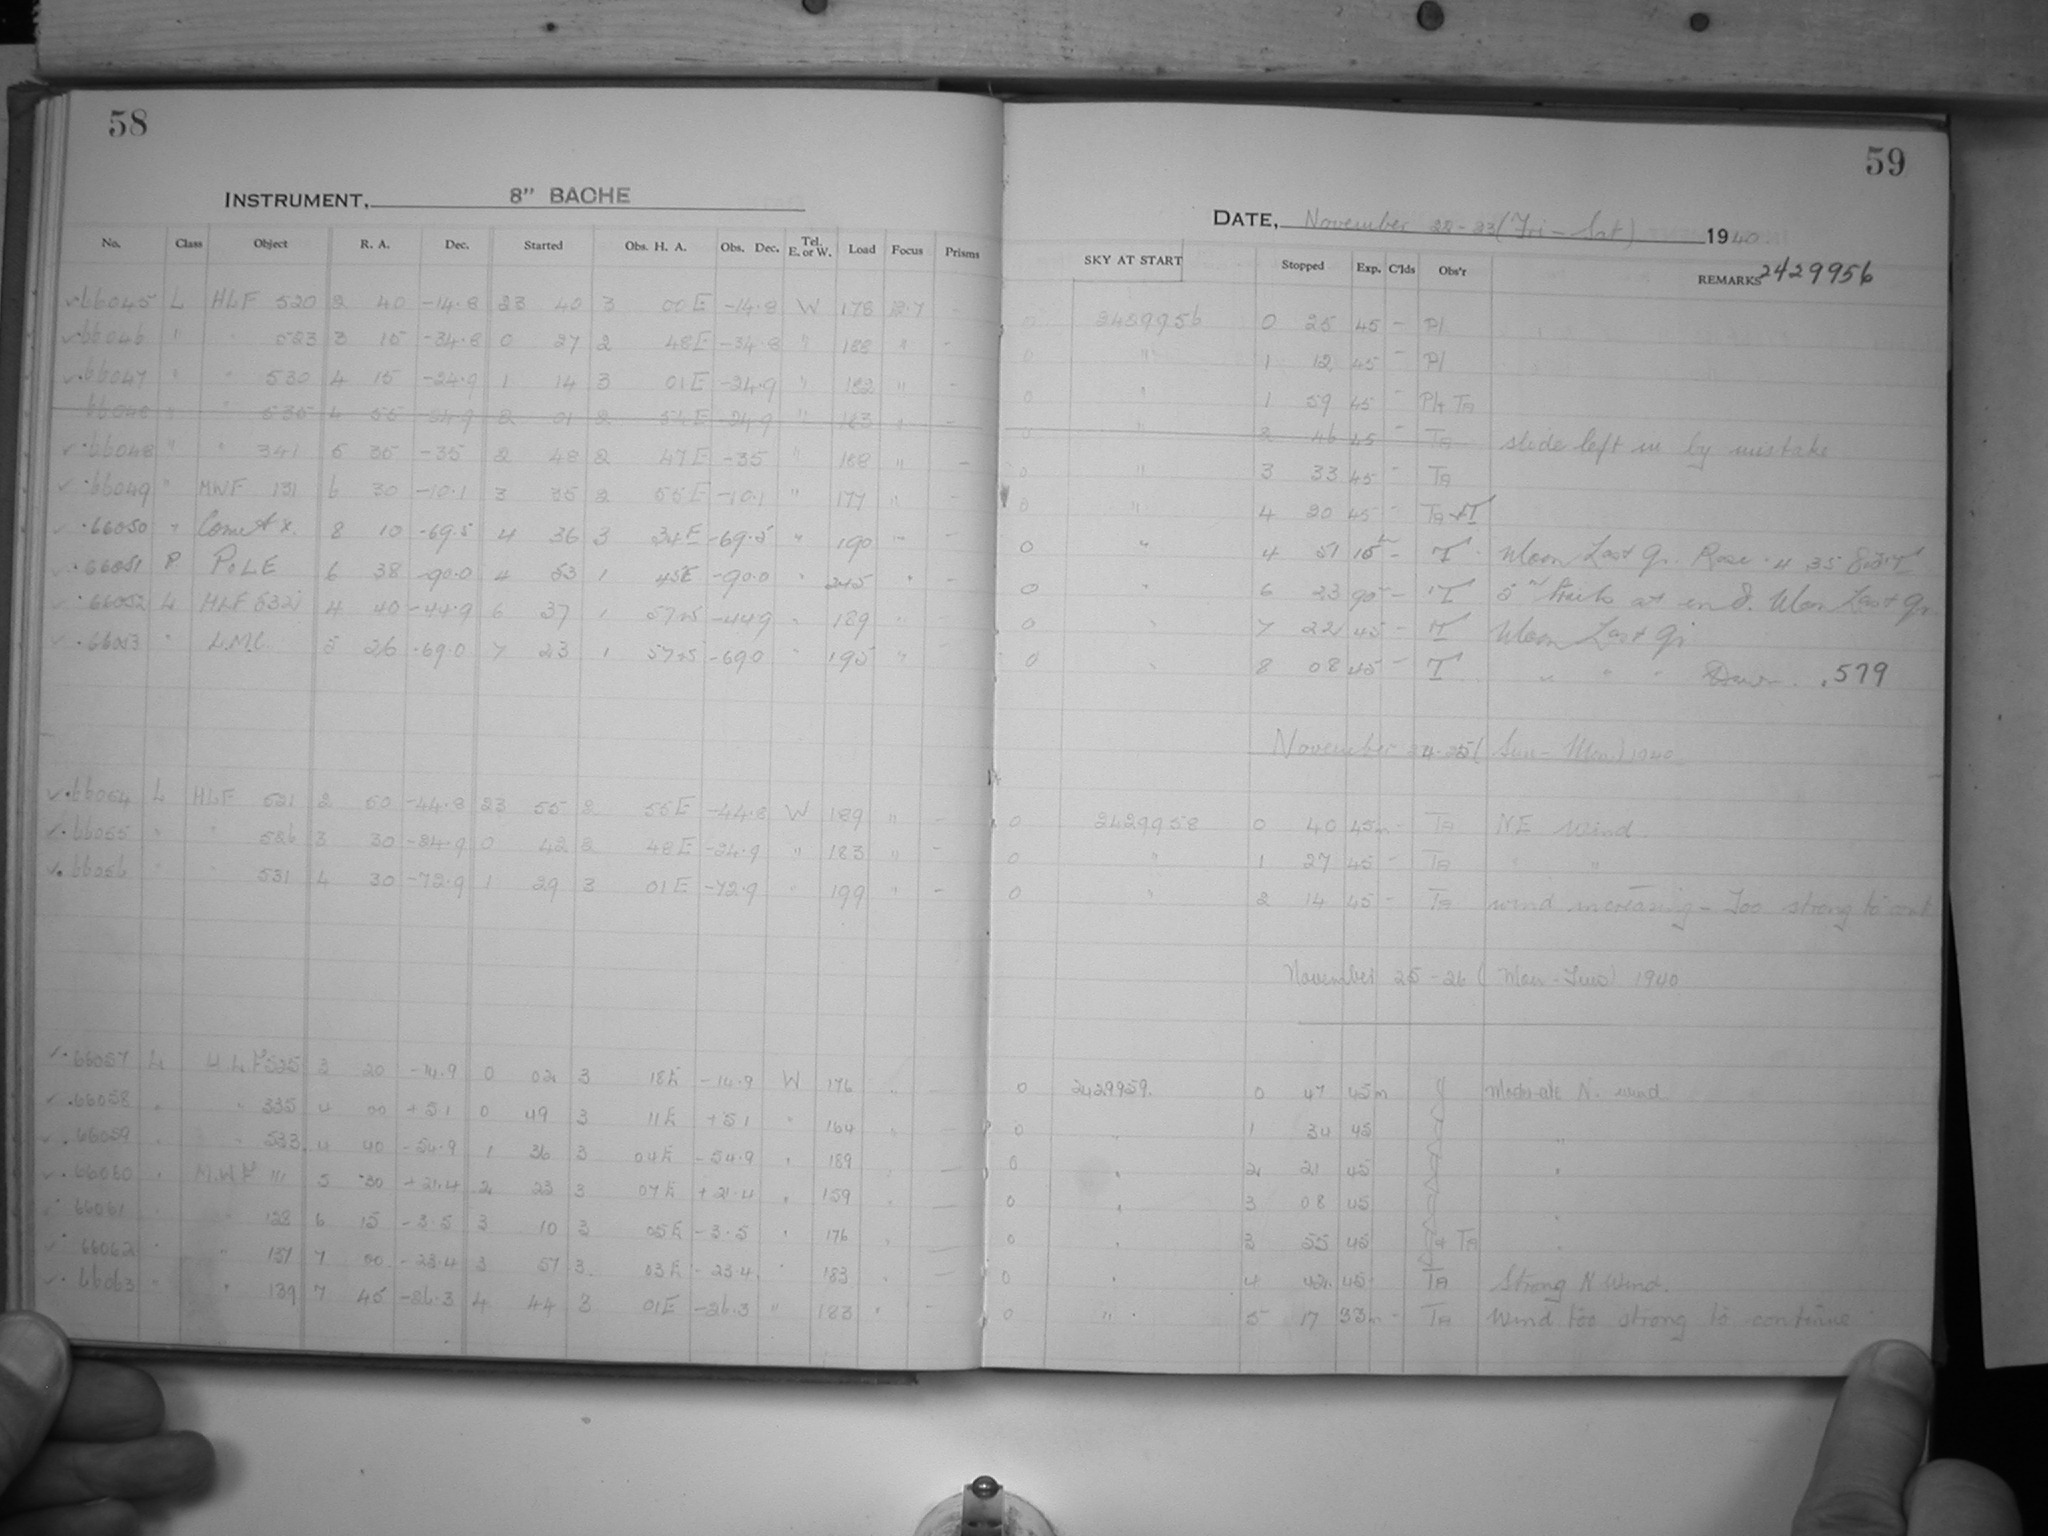 58
INSTRUMENT, 8" BACHE
No. Class Object R. A. Dec. Started Obs. H. A. Obs. Dec. Tel. E. or W. Load Focus Prisms
66045 L HLF 520 2 40 -14.8 23 40 3 00 E -14.8 W 178 12.7 -
66046 " " 523 3 15 -34.8 0 27 2 48E -34.8 " 188 " -
66047 " " 530 4 15 -24.9 1 14 3 01 E -24.9 " 182 " -
66048 " " 535 4 55 -24.9 2 01 2 54E -24.9 " 183 " -
66048 " " 341 5 35 -35 2 48 2 47E -35 " 188 " -
66049 " MWF 131 6 30 -10.1 3 35 2 55E -10.1 " 177 " -
66050 " Comet 8 10 -69.5 4 36 3 34E -69.5 " 190 " -
66051 P POLE 6 38 -90.0 4 53 1 45E -90.0 " 245 "
66052 L HLF 532 4 40 -44.9 6 37 1 57 -44.9 " 189 "
66053 " L.M.C. 5 26 -69.0 7 23 1 57 -69.0 " 195 "
66054 L HLF 521 2 50 -44.8 23 55 2 55E -44.8 W 189 " -
66055 " " 526 3 30 -24.9 0 42 2 48E -24.9 " 183 " -
66056 " " 531 4 30 -72.9 1 29 3 01 E -72.9 " 199 " -
66057 L HLF 525 3 20 -14.9 0 02 3 18E -14.9 W 176 " -
66058 " " 335 4 00 +5.1 0 49 3 11E +5.1 " 164 "
66059 " " 533 4 40 -54.9 1 36 3 04E -54.9 " 189 " -
66060 " M.W.F 111 5 30 +21.4 2 23 3 07E +21.4 " 159 " -
66061 " 128 6 15 -3.5 3 10 3 05E -3.5 " 176 " -
66062 " " 137 7 00 -23.4 3 57 3 03E -23.4 " 183 " -
66063 " " 139 7 45 -26.3 4 44 3 01E -26.3 " 183 " -
59
DATE, November 22-23 (Fri - Sat) 1940
SKY AT START Stopped Exp. C'lds Obs'r REMARKS 2429956
0 2429956 0 25 45 - Pl
0 " 1 12 45 - Pl
0 " 1 59 45 - Pl+ TA
0 " 2 46 45 - TA slide left in by mistake
0 " 3 33 45 - TA
0 " 4 20 45 - TA+T
0 " 4 51 15m - T Moon Last Qr. Rose 4 35
0 " 6 23 90 - T Moon Last Qr
0 " 7 22 45 - T Moon Last Qr
0 " 8 08 45 - T " " " Dawn .579
November 24-25 (Sun - Mon) 1940
0 2429958 0 40 45m - TA NE wind.
0 " 1 27 45 - TA " "
0 " 2 14 45 - TA wind increasing - Too strong to cont
November 25-26 (Mon - Tues) 1940
0 2429959. 0 47 45m Moderate N. wind
0 " 1 34 45 "
0 " 2 21 45 "
0 " 3 08 45 "
0 " 3 55 45 + TA "
0 " 4 42 45 TA Strong N Wind.
0 " 5 17 33m - TA Wind too strong to continue